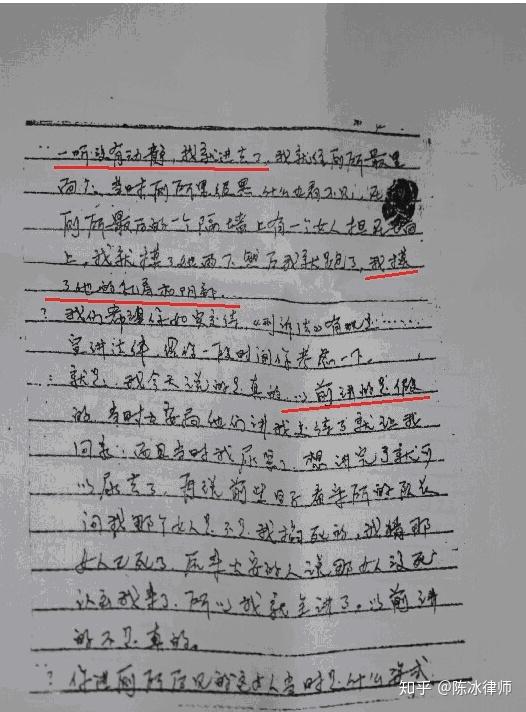 一听没有动静，我就进去了，我就往厕所最里
面去，当时厕所里很黑，什么也看不见，在
厕所最后的一个隔墙上有一个女人担在墙
上，我就摸了她两下，然后我就跑了，我摸
了她的乳房和阴部。
？我们希望你如实交待，《刑诉法》有规定……
宣讲法律，思给一段时间你考虑一下。
：就是，我今天说的是真的，以前讲的是假
的，当时公安局他们讲我交待了就让我
回去，而且当时我尿急，想讲完了就可
以尿去了，再说前些日子看守所的队长
问我那个女人是不是我掐死的，我猜那
女人已死了，后来公安的人说那女人没死
认出我来了，所以我就全讲了。以前讲
的不是真的。
？你进厕所后见的那女人当时是什么姿式
知乎 @陈冰律师